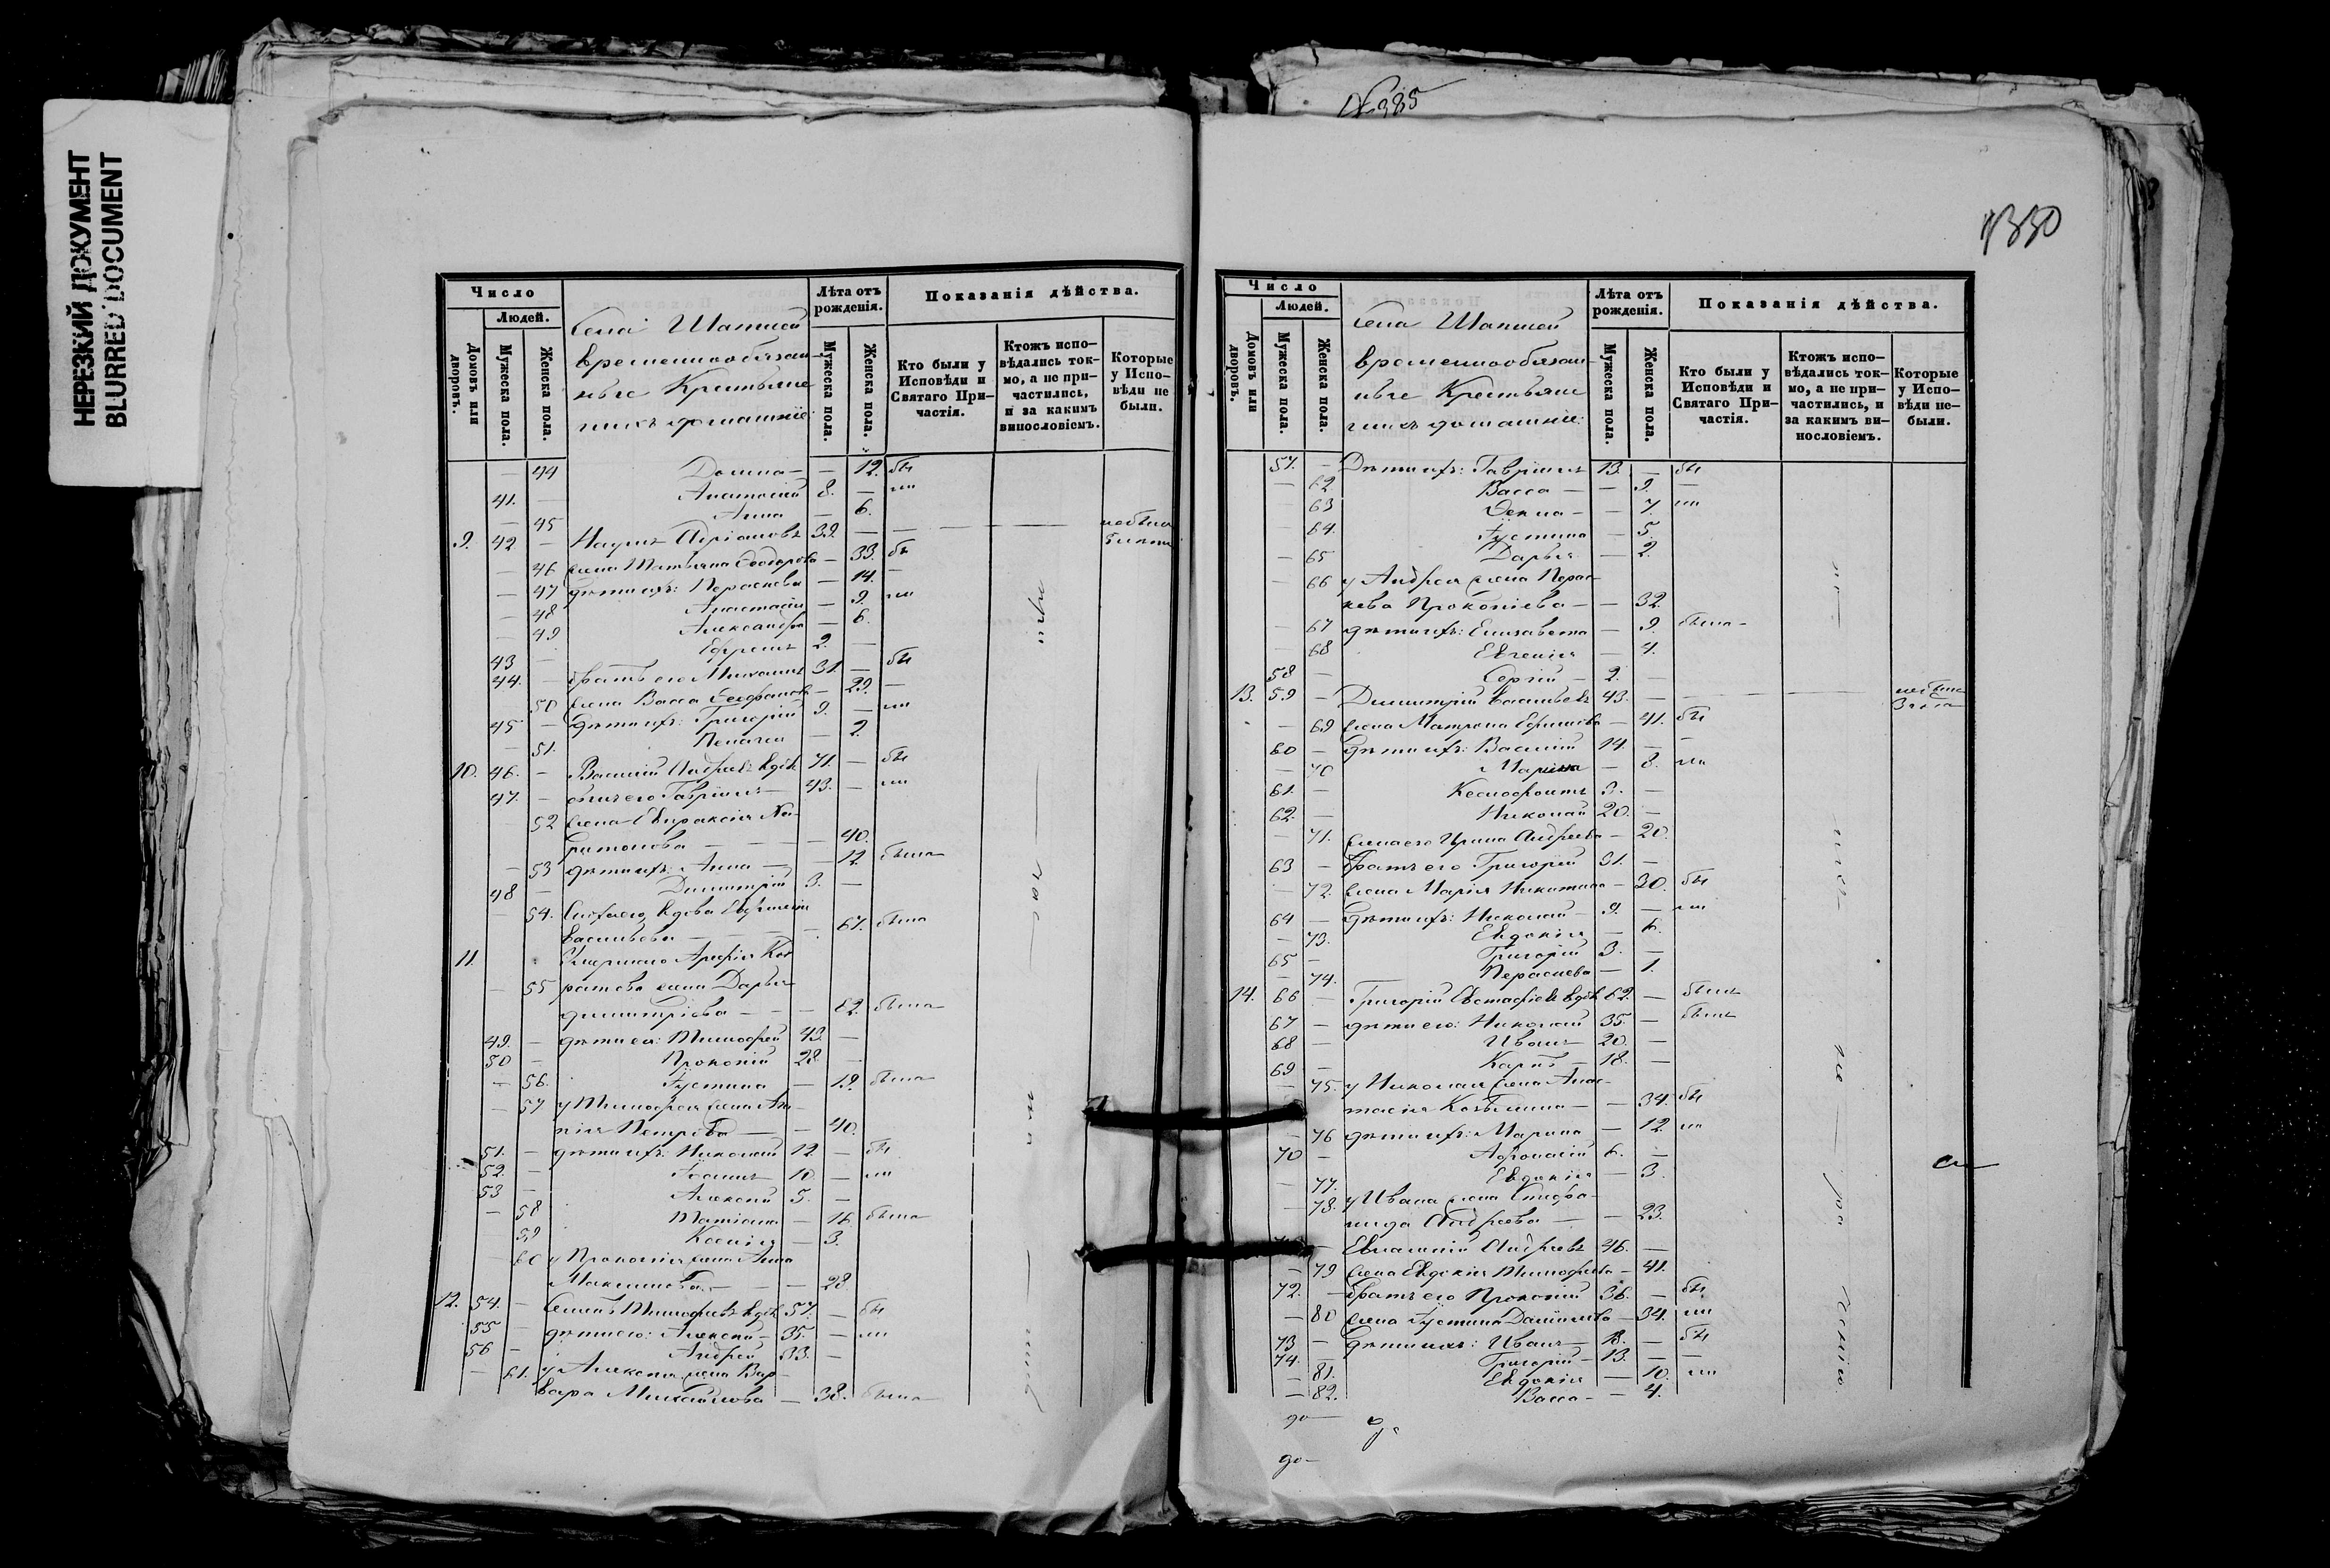 НЕРЕЗКИЙ ДОКУМЕНТ
BLURRED DOCUMENT
Число
Людей.
Домовъ или дворовъ.
Мужеска пола.
Женска пола.
временнообязан-
ные Крестьяне
ихъ домашніе:
Лѣта отъ рожденія.
Мужеска пола.
Женска пола.
Показанія дѣйства.
Кто были у Исповѣди и Святаго При-частія.
Ктожъ испо-вѣдались ток-мо, а не при-частились, и за какимъ винословіемъ.
Которые у Испо-вѣди не были.
— 44 Домна — — 12. бы
41. — Анатолій 8. — ли
— 45 Анна — 6.
9. 42 — Наумъ Адріановъ 39. — — — не былъ
— 46 жена Татьяна Ѳеодорова — 33. бы
— 47 дѣти ихъ: Параскева — 14. —
— 48 Анастасія — 9. ли
— 49 Александра — 6.
43 — Ефремъ 2. —
44. — братъ его Михаилъ 31 — бы
50 жена Васса — 29. —
45 — дѣти ихъ: Григорій 9. — ли
— 51. Пелагея — 2.
10. 46. — Василій Андреевъ вдов 71. — бы
47. — сынъ его Гавріилъ — 43. — ли
52 жена Евпраксія Ха-
ритонова — — — 40.
— 53 дѣти ихъ: Анна — — 12. была
48 — Димитрій 3. —
— 54. вдова
Васильева — — — 67. была
11.
— 55 жена Дарья
Димитріева — — — 62. была
49. — дѣти ея: Тимофей 43. —
50 — Прокопій 28. —
— 56. Іустина — 19. была
— 57 у Тимофея жена
Петрова — — 40.
51. — дѣти ихъ: Николай 12 — бы
52. — Іоаннъ 10. — ли
53 — Алексѣй 5. —
— 58 Татіана — 16. была
59 Ксенія — 3.
60 у Прокопія жена Анна
Максимова. — — 28
12. 54. — Семенъ Тимофеевъ вдов 57. — бы
55 — дѣти его: Алексѣй — 35. — ли
56 — Андрей 33. —
— 61. у Алексѣя жена Вар-
вара Михайлова — 38. была
385
330
Число
Людей.
Домовъ или дворовъ.
Мужеска пола.
Женска пола.
временнообязан-
ные Крестьяне
ихъ домашніе:
Лѣта отъ рожденія.
Мужеска пола.
Женска пола.
Показанія дѣйства.
Кто были у Исповѣди и Святаго При-частія.
Ктожъ испо-вѣдались ток-мо, а не при-частились, и за какимъ ви-нословіемъ.
Которые у Испо-вѣди не-были.
57. — Дѣти ихъ: Гавріилъ 13. — бы
— 62 Васса — — 9. —
63 Ѳекла — — 7. ли
64. Іустина — 5.
65 Дарья — 2.
66 у Андрея жена Парас-
кева Прокопіева — — 32
67 дѣти ихъ: Елизавета — 9. была —
68 Евгенія — 4.
58 — Сергій — 2. —
13. 59 — Димитрій Васильевъ 43. — — — не былъ
69 жена Матрона Ефимова — 41. бы
60 — дѣти ихъ: Василій 14. — —
— 70 Марина — 8. ли
61. — Ксенофонтъ 3. —
62. — Николай 20. —
— 71. жена его Ирина Андреева — 20.
63 — братъ его Григорій 31. —
— 72. жена Марія Никитина — 30. бы
64 — дѣти ихъ: Николай — 9. — ли
— 73. Евдокія — 6.
65 — Григорій 3. —
— 74. Параскева — 1.
14. 66 — Григорій Евстафіевъ вдов 62. — былъ
67 — дѣти его: Николай 35. — былъ
68 — Иванъ — 20. —
69 — Карпъ — 18. —
75. у Николая жена Анас-
тасія Козьмина — — 34. бы
— 76 дѣти ихъ: Марина — 12 ли
70 — Аѳонасій 6. —
77. Евдокія — 3.
— 78. у Ивана жена Степа-
нида Андреева — — 23.
— Евлампій Андреевъ 46. —
— 79 жена Евдокія Тимофеева — 41.
72. — братъ его Прокопій 36. — бы
— 80 жена Іустина Даніилова — 34. ли
73 — дѣти ихъ: Иванъ — 18. — бы
74. — Григорій — 13. — —
— 81. Евдокія — 10. ли
— 82. Васса — — 4.